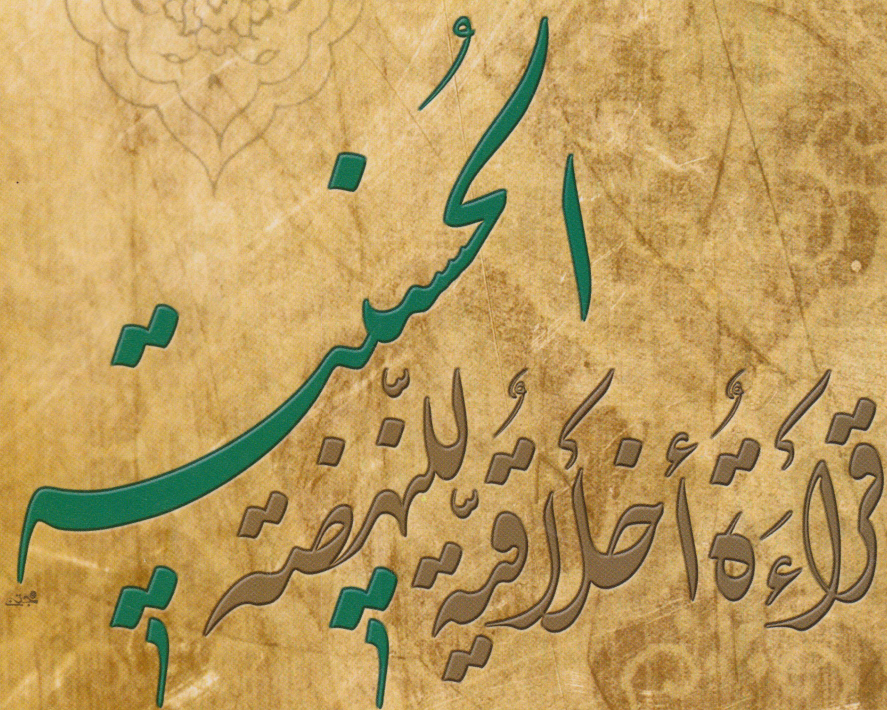 قراءَةُ أخلاقيّةُ للنَّهضة
الحُسينية